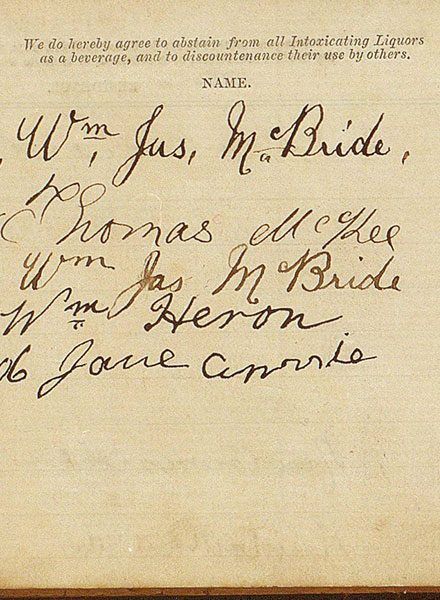 We do hereby agree to abstain from all Intoxicating Liquors
as a beverage, and to discountenance their use by others.
NAME.
Wm, Jas, McBride,
Thomas McKee
Wm Jas McBride
Wm Heron
Jane